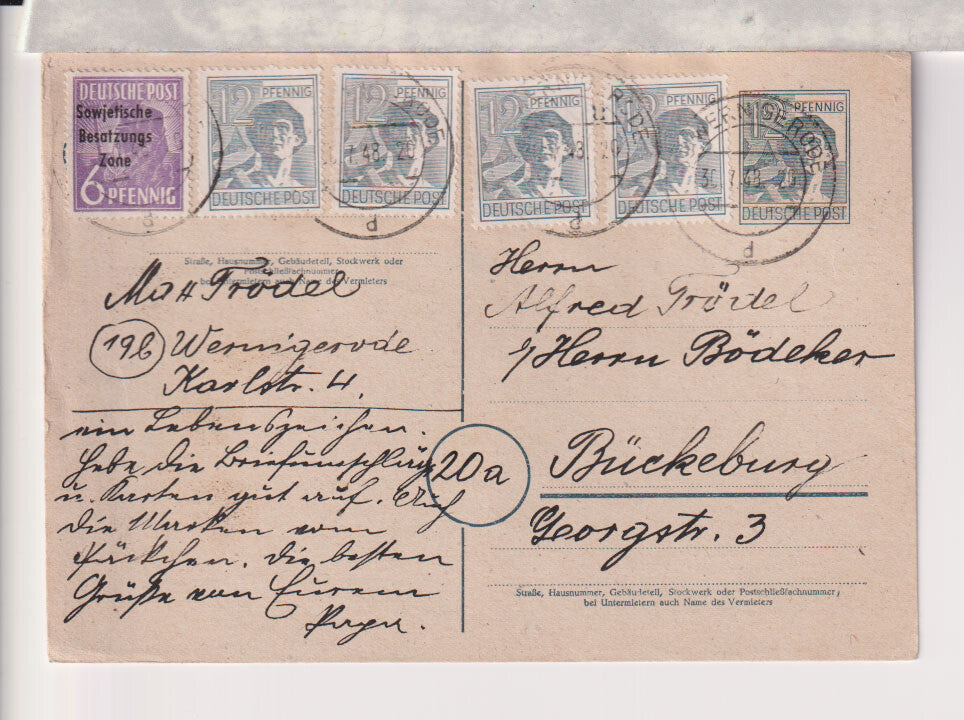 DEUTSCHE POST
Sowjetische
Besatzungs
Zone
6 PFENNIG
12 PFENNIG
DEUTSCHE POST
12 PFENNIG
DEUTSCHE POST
12 PFENNIG
DEUTSCHE POST
12 PFENNIG
DEUTSCHE POST
12 PFENNIG
DEUTSCHE POST
WERNIGERODE
d
d
d
d
Straße, Hausnummer, Gebäudeteil, Stockwerk oder
Postschließfachnummer
bei Untermietern auch Name des Vermieters
Max Trödel
(19b) Wernigerode
Karlstr. 4.
ein Lebenszeichen.
Hebe die Briefumschläge
u. Karten gut auf. Auch
die Marken vom
Päckchen. Die besten
Grüße von Eurem
Papa.
Herrn
Alfred Trödel
Herrn Bödeker
20a
Bückeburg
Georgstr. 3
Straße, Hausnummer, Gebäudeteil, Stockwerk oder Postschließfachnummer;
bei Untermietern auch Name des Vermieters